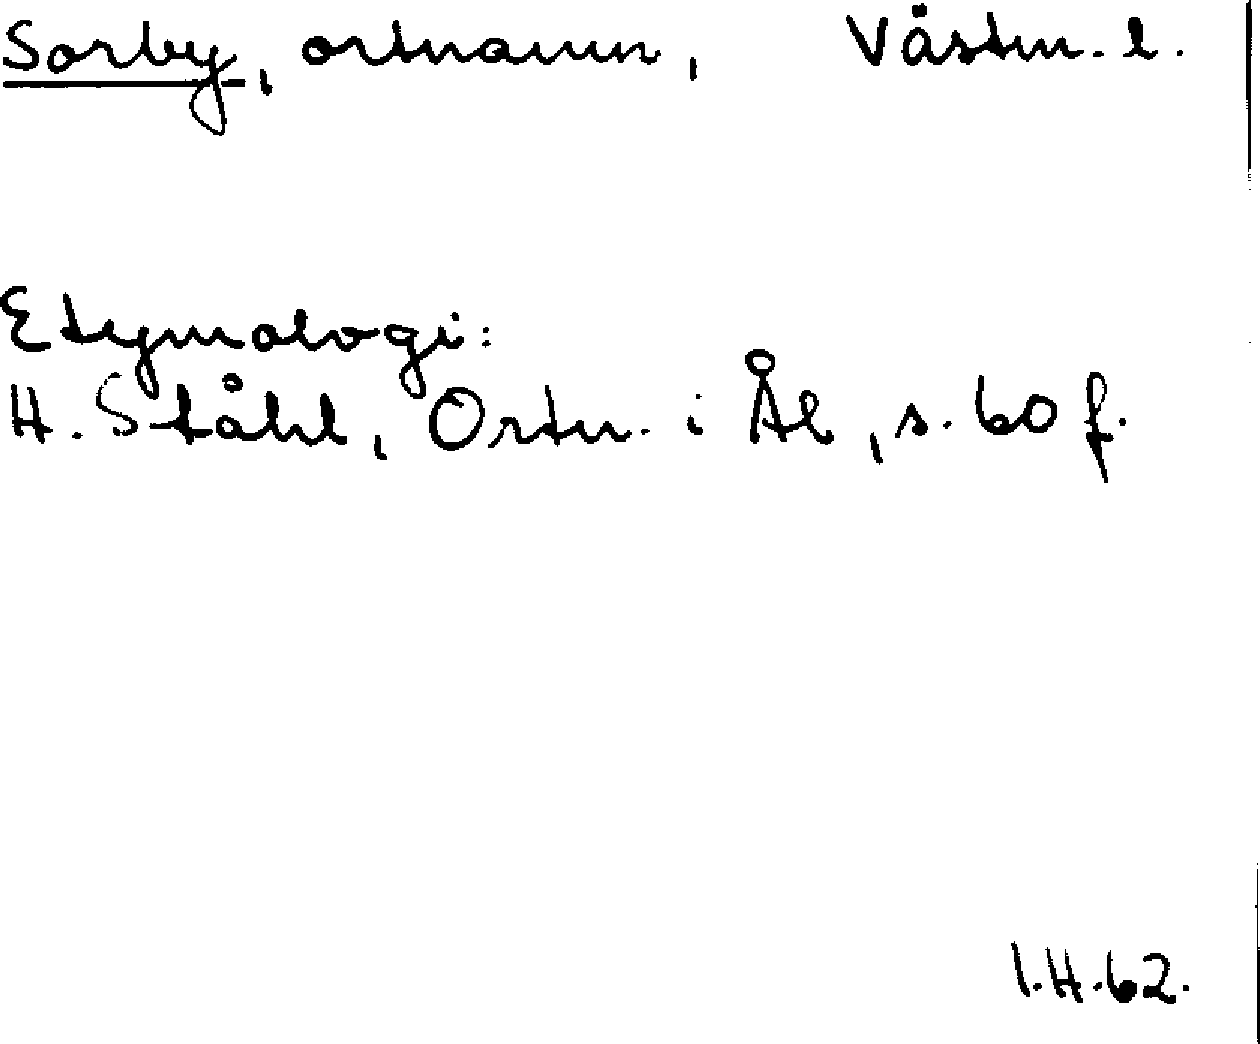 Sorby, ortnamn, Västm. l.
Etymologi:
H. Ståhl, Ortn. i Ål, s. 60 f.
I.H.62.